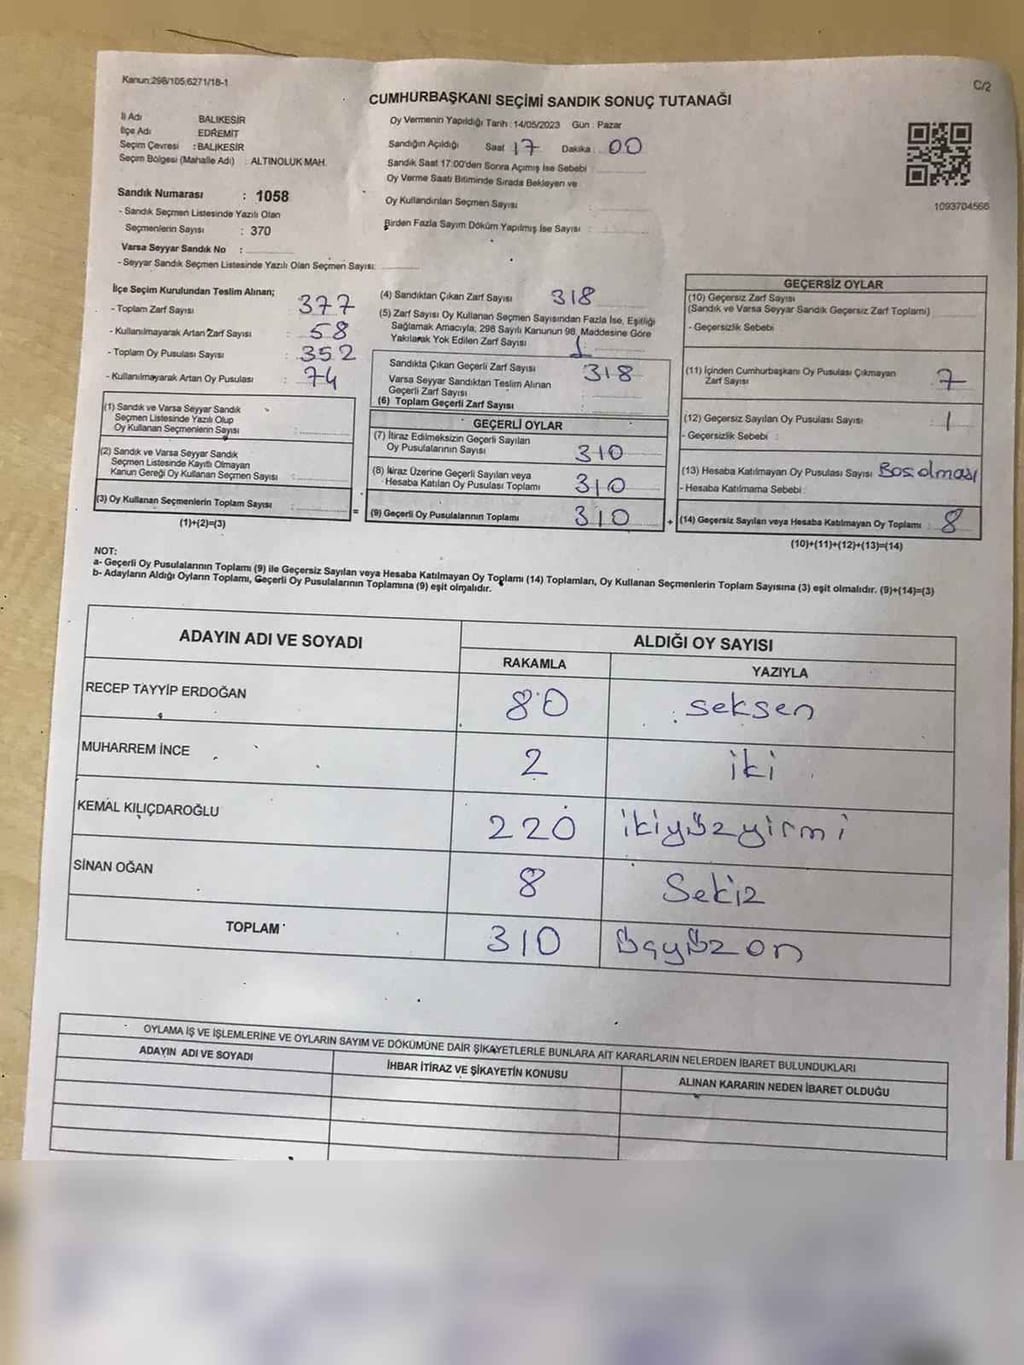 Kanun:298/105;6271/18-1
C/2
CUMHURBAŞKANI SEÇİMİ SANDIK SONUÇ TUTANAĞI
İl Adı BALIKESİR
İlçe Adı EDREMİT
Seçim Çevresi : BALIKESİR
Seçim Bölgesi (Mahalle Adı) : ALTINOLUK MAH.
Oy Vermenin Yapıldığı Tarih : 14/05/2023 Gün : Pazar
Sandığın Açıldığı Saat 17 Dakika : 00
Sandık Saat 17:00'den Sonra Açımış İse Sebebi :
Oy Verme Saati Bitiminde Sırada Bekleyen ve
Oy Kullandırılan Seçmen Sayısı :
Birden Fazla Sayım Döküm Yapılmış İse Sayısı :
1093704566
Sandık Numarası : 1058
- Sandık Seçmen Listesinde Yazılı Olan
Seçmenlerin Sayısı : 370
Varsa Seyyar Sandık No :
- Seyyar Sandık Seçmen Listesinde Yazılı Olan Seçmen Sayısı:
İlçe Seçim Kurulundan Teslim Alınan;
- Toplam Zarf Sayısı : 377
- Kullanılmayarak Artan Zarf Sayısı : 58
- Toplam Oy Pusulası Sayısı : 352
- Kullanılmayarak Artan Oy Pusulası : 74
(1) Sandık ve Varsa Seyyar Sandık
Seçmen Listesinde Yazılı Olup
Oy Kullanan Seçmenlerin Sayısı :
(2) Sandık ve Varsa Seyyar Sandık
Seçmen Listesinde Kayıtlı Olmayan
Kanun Gereği Oy Kullanan Seçmen Sayısı :
(3) Oy Kullanan Seçmenlerin Toplam Sayısı :
(1)+(2)=(3)
(4) Sandıktan Çıkan Zarf Sayısı 318
(5) Zarf Sayısı Oy Kullanan Seçmen Sayısından Fazla İse, Eşitliği
Sağlamak Amacıyla, 298 Sayılı Kanunun 98. Maddesine Göre
Yakılarak Yok Edilen Zarf Sayısı :
Sandıkta Çıkan Geçerli Zarf Sayısı : 318
Varsa Seyyar Sandıktan Teslim Alınan
Geçerli Zarf Sayısı :
(6) Toplam Geçerli Zarf Sayısı :
GEÇERLİ OYLAR
(7) İtiraz Edilmeksizin Geçerli Sayılan
Oy Pusulalarının Sayısı : 310
(8) İtiraz Üzerine Geçerli Sayılan veya
Hesaba Katılan Oy Pusulası Toplamı : 310
= (9) Geçerli Oy Pusulalarının Toplamı 310
GEÇERSİZ OYLAR
(10) Geçersiz Zarf Sayısı
(Sandık ve Varsa Seyyar Sandık Geçersiz Zarf Toplamı)
- Geçersizlik Sebebi
(11) İçinden Cumhurbaşkanı Oy Pusulası Çıkmayan
Zarf Sayısı : 7
(12) Geçersiz Sayılan Oy Pusulası Sayısı : 1
- Geçersizlik Sebebi :
(13) Hesaba Katılmayan Oy Pusulası Sayısı Boş olması
- Hesaba Katılmama Sebebi :
+ (14) Geçersiz Sayılan veya Hesaba Katılmayan Oy Toplamı : 8
(10)+(11)+(12)+(13)=(14)
NOT:
a- Geçerli Oy Pusulalarının Toplamı (9) ile Geçersiz Sayılan veya Hesaba Katılmayan Oy Toplamı (14) Toplamları, Oy Kullanan Seçmenlerin Toplam Sayısına (3) eşit olmalıdır. (9)+(14)=(3)
b- Adayların Aldığı Oyların Toplamı, Geçerli Oy Pusulalarının Toplamına (9) eşit olmalıdır.
ADAYIN ADI VE SOYADI ALDIĞI OY SAYISI
RAKAMLA YAZIYLA
RECEP TAYYİP ERDOĞAN 80 seksen
MUHARREM İNCE 2 iki
KEMAL KILIÇDAROĞLU 220 ikiyüzyirmi
SİNAN OĞAN 8 Sekiz
TOPLAM 310 üçyüzon
OYLAMA İŞ VE İŞLEMLERİNE VE OYLARIN SAYIM VE DÖKÜMÜNE DAİR ŞİKAYETLERLE BUNLARA AİT KARARLARIN NELERDEN İBARET BULUNDUKLARI
ADAYIN ADI VE SOYADI İHBAR İTİRAZ VE ŞİKAYETİN KONUSU ALINAN KARARIN NEDEN İBARET OLDUĞU